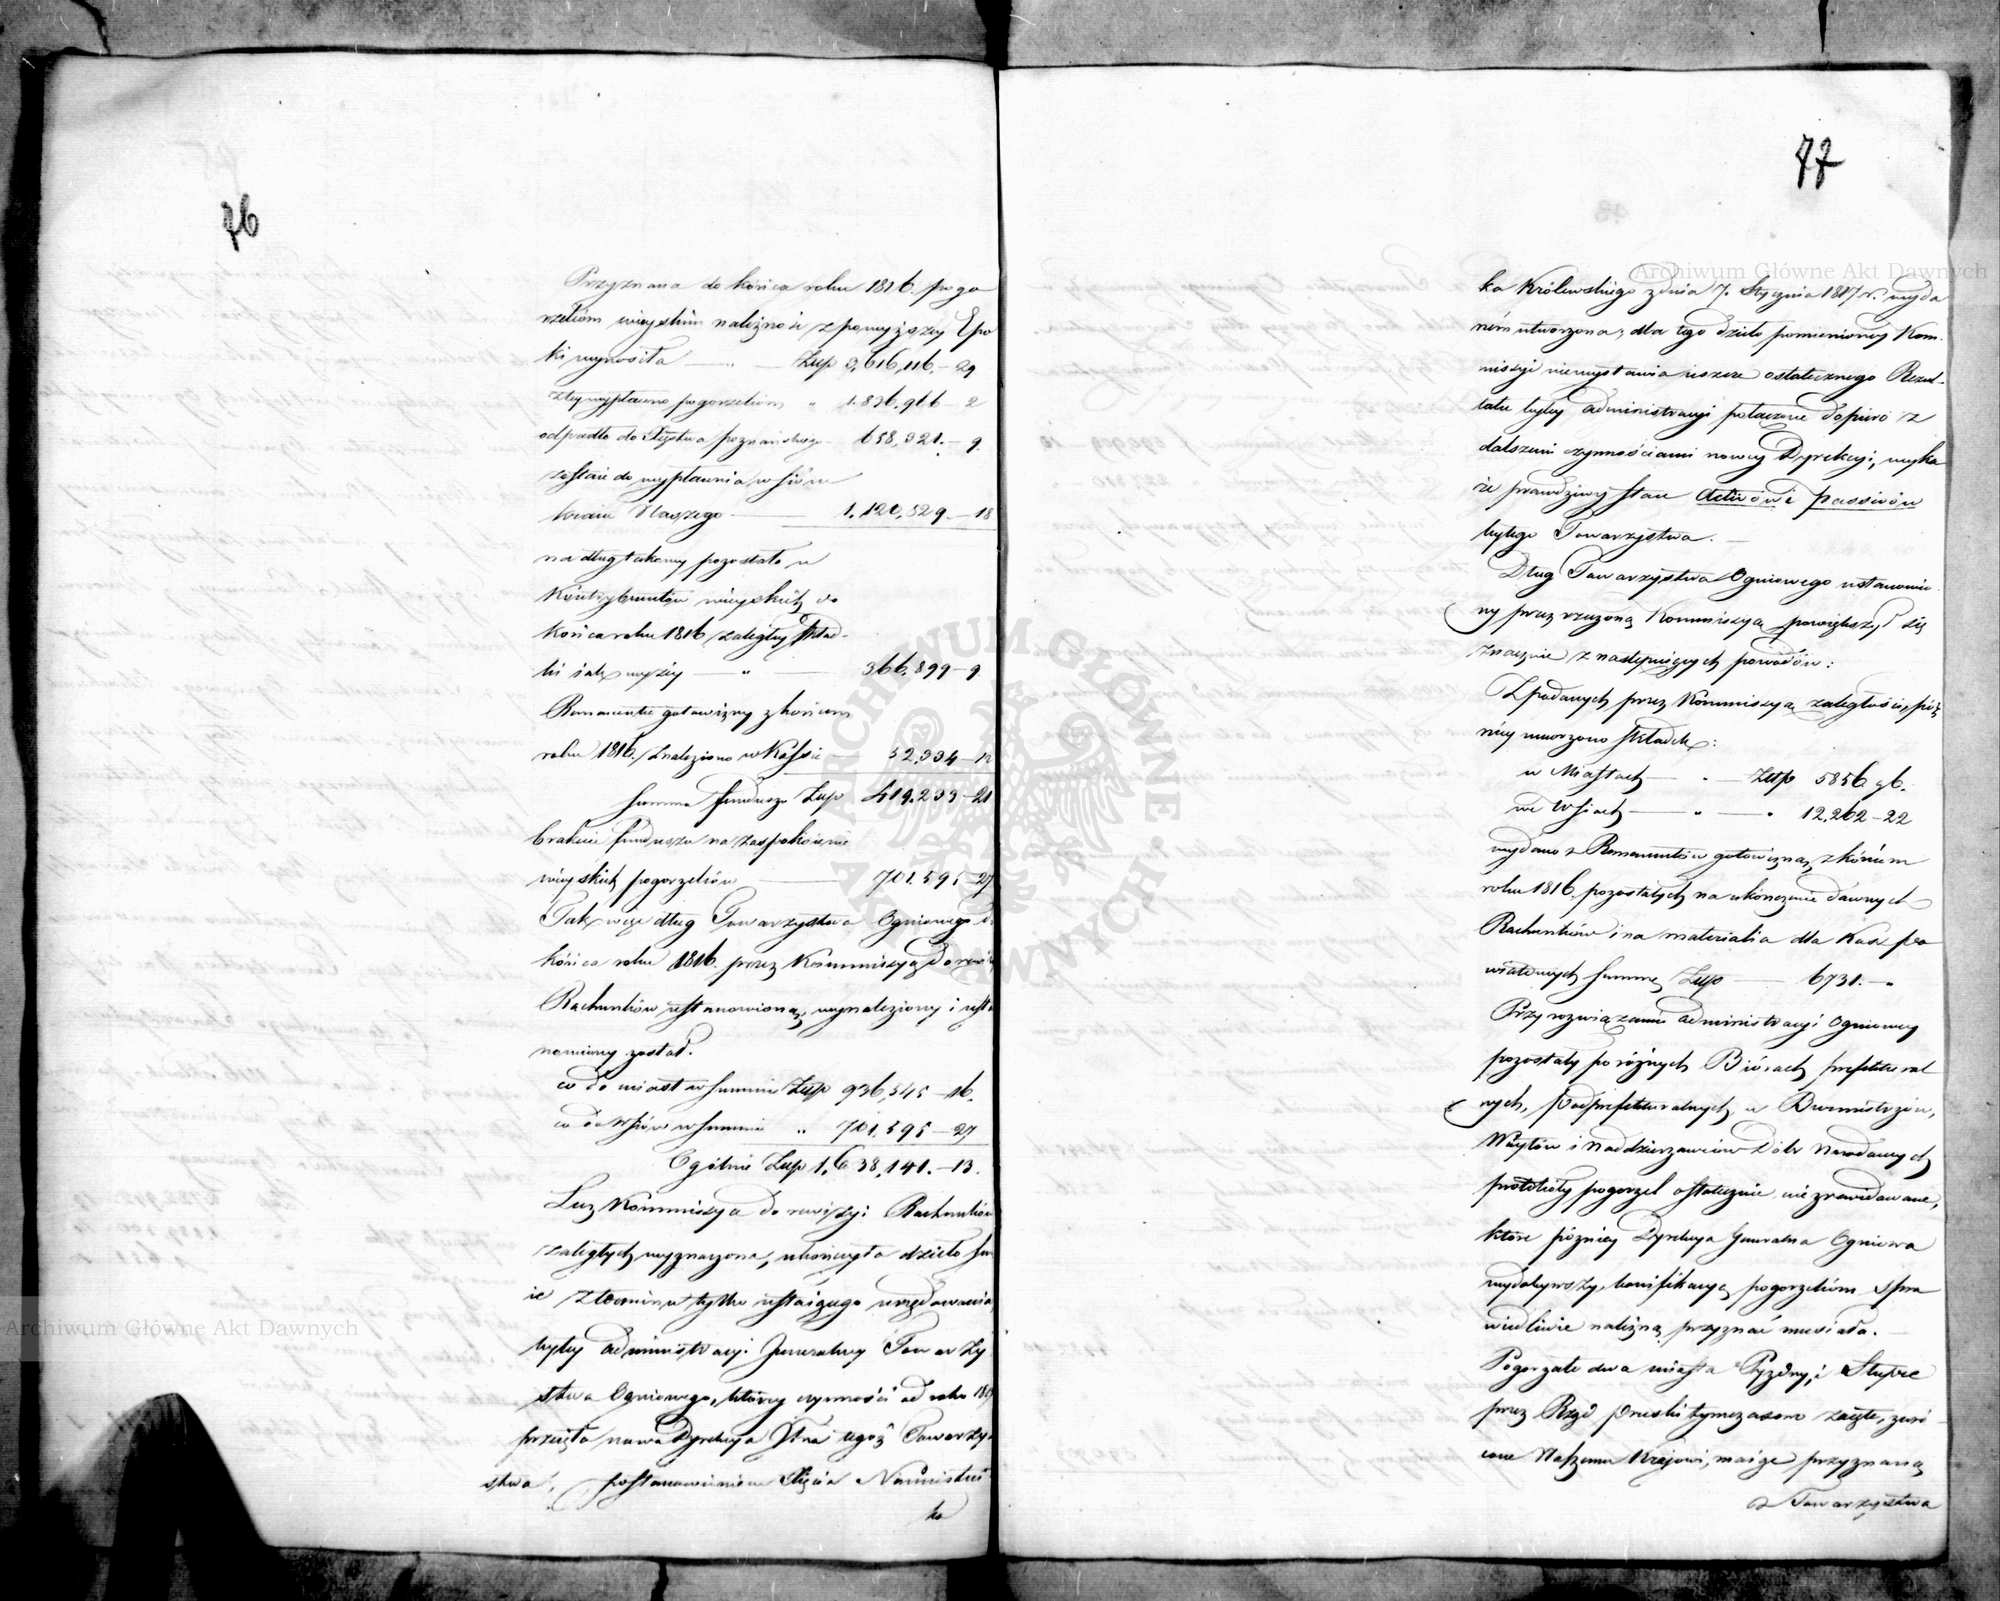 76
Przyznana do końca roku 1816. pogo
rzelcom wieyskim należność z powyższey Epo
ki wynosiła — „ — Złp 3,616,116. – 29
z tey wypłacono pogorzelcom „ 1.836,966 – 2
odpadło do Xięstwa poznańskiego – 658,321. – 9.
zostaie do wypłacenia wsiom
kraiu Naszego — 1,120,829. – 18
na dług takowy pozostało u
Kontrybuentów wieyskich do
końca roku 1816 zaległey skład-
ki iak wyżey — „ — 366,899 – 9
Remanentu gotowizny z końcem
roku 1816. znaleziono w Kassie 52,334 – 12
Summa funduszu Złp 419.233 – 21
brakuie funduszu na zaspokoienie
wieyskich pogorzelców — 701.595 – 27
Tak więc dług Towarzystwa Ogniowego do
końca roku 1816. przez Kommissyą do rewiz
Rachunków ustanowioną, wynaleziony i usta
nowiony został.
co do miast w Summie Złp 936,545 – 16.
co do Wsiów w Summie „ 701,595 – 27
Ogólnie Złp 1,638,141. – 13.
Lecz Kommissya do rewizyi Rachunków
zaległych wyznaczona, ukończyła dzieło swo
ie z terminu tylko ustaiącego urzędowania
byłey administracyi Generalney Towarzy
stwa Ogniowego, którey czynności od roku 181
przeięła nowa Dyrekcya Jlna tegoż Towarzy
stwa, postanowieniem Xięcia Namiestni
ka
77
ka Królewskiego z dnia 7. Stycznia 1817 r. wyda
ném utworzona; dla tego dzieło pomienioney Kom.
missyi niewystawia ieszcze ostatecznego Rezul-
tatu byłey administracyi połączone dopiero z
dalszemi czynnościami nowey Dyrekcyi, wyka
że prawdziwy stan Activów i passivów
byłego Towarzystwa. —
Dług Towarzystwa Ogniowego ustanowio
ny przez rzeczoną Kommissyą powiększył się
znacznie z następuiących powodów:
Z podanych przez Kommissyą zaległości, póź
niey umorzono składek:
w Miastach — „ — Złp 5856 gb.
we Wsiach — „ — „ 12,262 – 22
wydano z Remanentów gotowizną z końcem
roku 1816. pozostałych na ukończenie dawnych
Rachunków i na materialia dla Kass po
wiatowych Summę Złp — 6731. – „
Przy rozwiązaniu administracyi Ogniowey
pozostały po różnych Biórach prefektural
nych, podprefekturalnych, u Burmistrzów,
Woytów i Naddzierżawców Dóbr Narodowych
protokóły pogorzel ostatecznie niezrewidowane,
które późniey Dyrekcya Generalna Ogniowa
wydobywszy, bonifikacyą pogorzelcom spra
wiedliwie należną przyznać musiała. —
Pogorzałe dwa miasta Pyzdry, i Słupce
przez Rząd pruski tymczasowo zaięte, zwró
cone Naszemu Krajowi, maiąc przyznaną
z Towarzystwa
Archiwum Główne Akt Dawnych
Archiwum Główne Akt Dawnych
ARCHIWUM GŁÓWNE AKT DAWNYCH